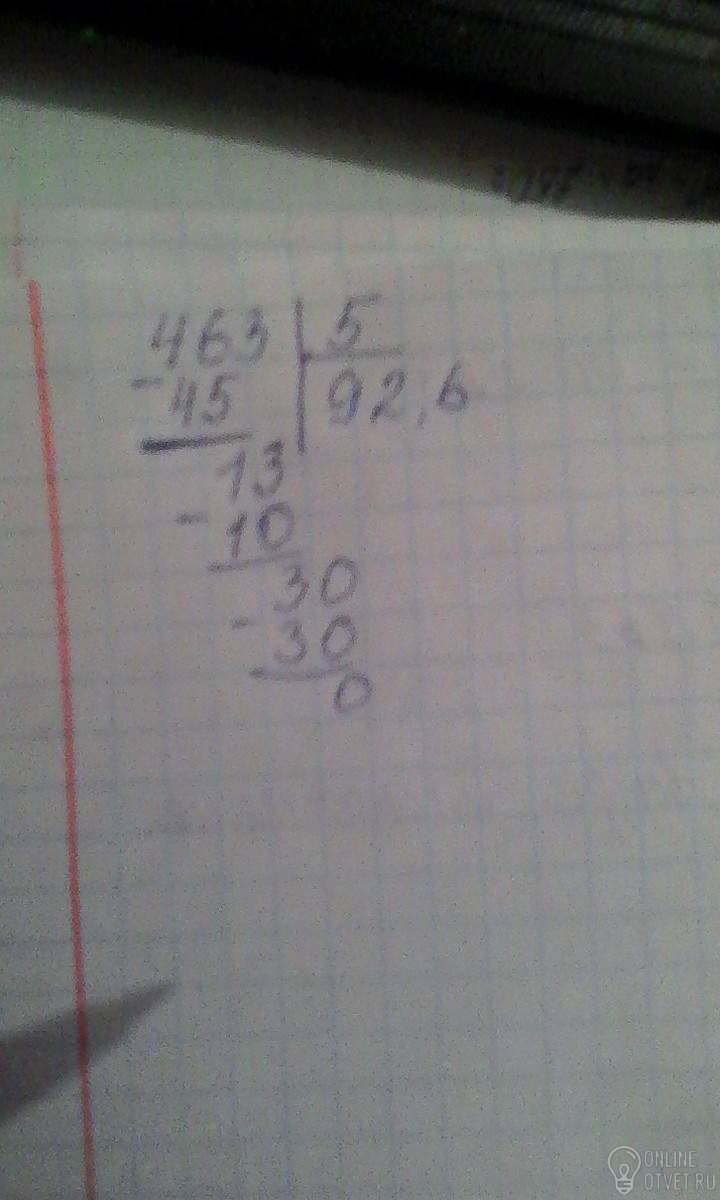 463 | 5
- 45 | 92,6
13
- 10
30
- 30
0
ONLINE
OTVET.RU